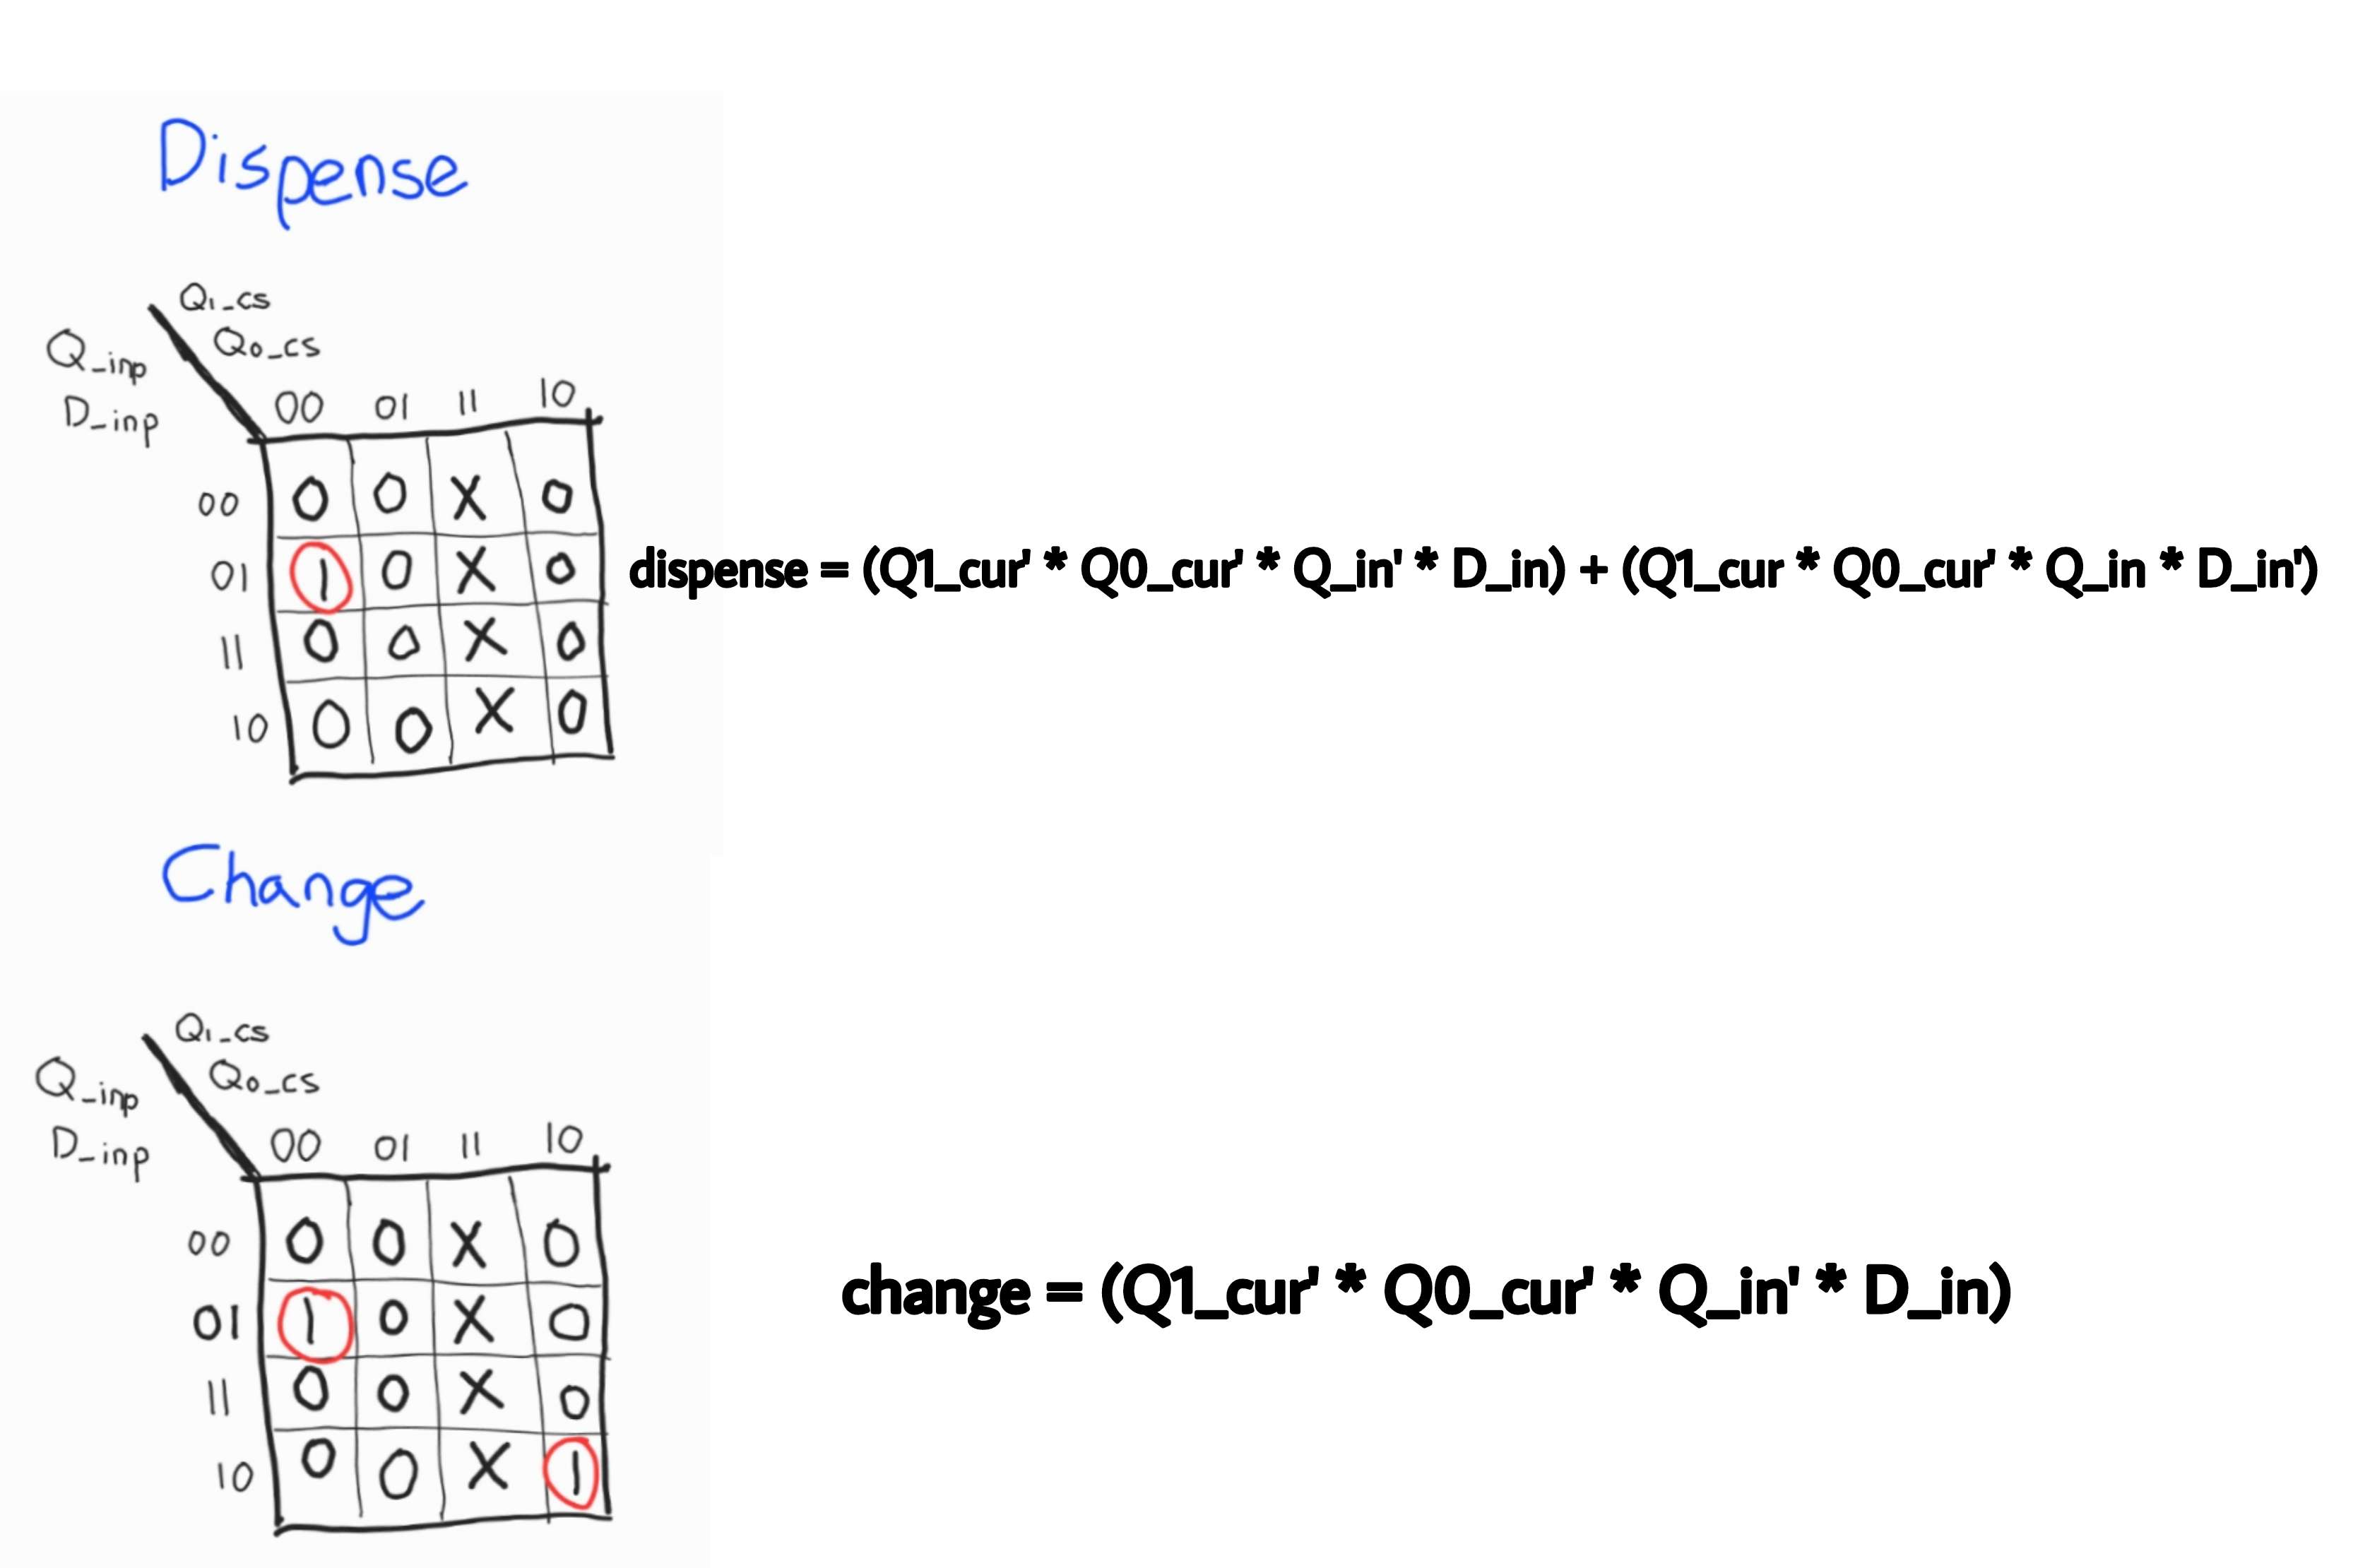 Dispense
Q1_cs
Q_inp Q0_cs
D_inp
00 01 11 10
00 0 0 X 0
01 1 0 X 0
11 0 0 X 0
10 0 0 X 0
dispense = (Q1_cur' * Q0_cur' * Q_in' * D_in) + (Q1_cur * Q0_cur' * Q_in * D_in')
Change
Q1_cs
Q_inp Q0_cs
D_inp
00 01 11 10
00 0 0 X 0
01 1 0 X 0
11 0 0 X 0
10 0 0 X 1
change = (Q1_cur' * Q0_cur' * Q_in' * D_in)